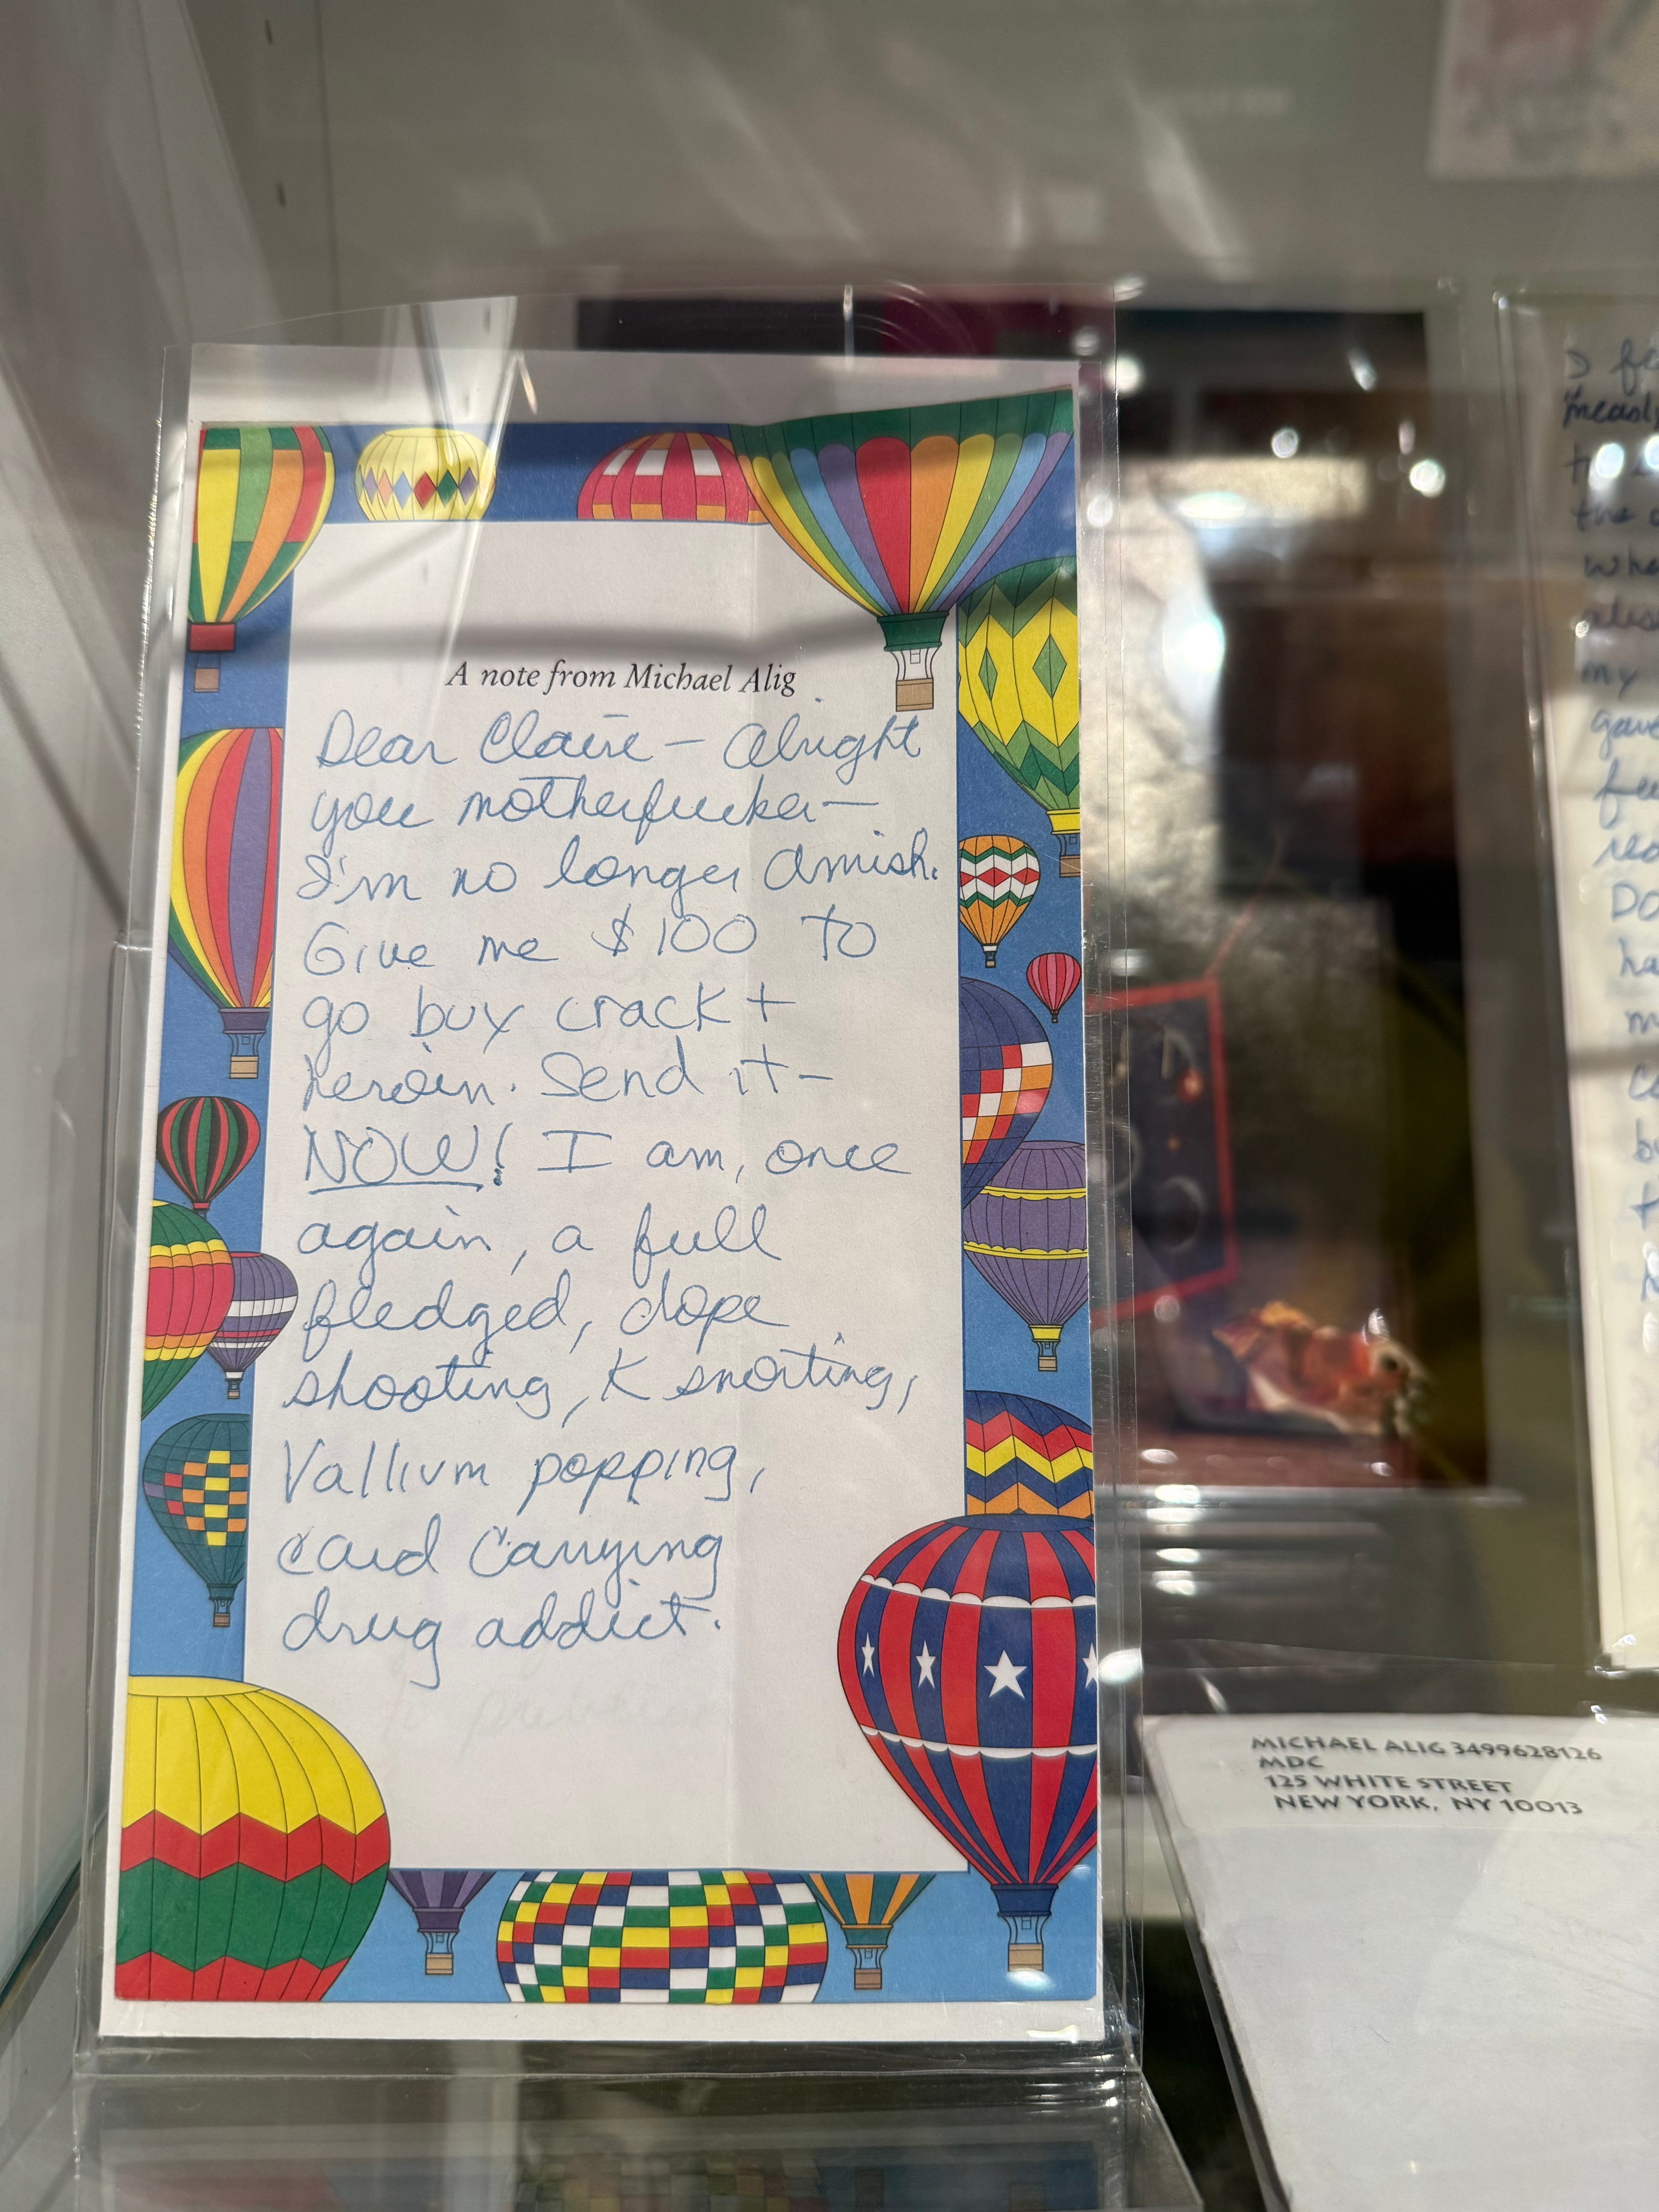 A note from Michael Alig
Dear Claire – Alright
you motherfucker –
I'm no longer Amish.
Give me $100 to
go buy crack +
heroin. Send it –
NOW! I am, once
again, a full
fledged, dope
shooting, K snorting,
Vallium popping,
card carrying
drug addict.
the
my
MICHAEL ALIG 3499628126
MDC
125 WHITE STREET
NEW YORK, NY 10013